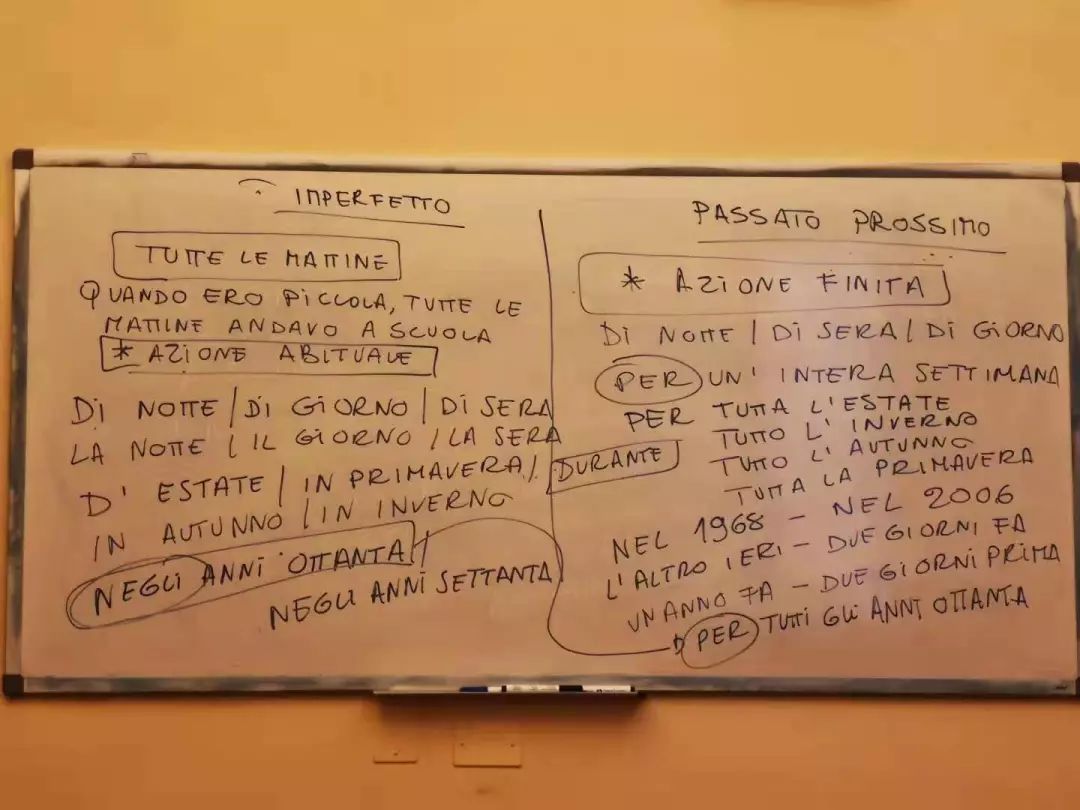 IMPERFETTO
TUTTE LE MATTINE
QUANDO ERO PICCOLA, TUTTE LE
MATTINE ANDAVO A SCUOLA
* AZIONE ABITUALE
DI NOTTE / DI GIORNO / DI SERA
LA NOTTE / IL GIORNO / LA SERA
D' ESTATE / IN PRIMAVERA /
IN AUTUNNO / IN INVERNO
NEGLI ANNI OTTANTA /
NEGLI ANNI SETTANTA
PASSATO PROSSIMO
* AZIONE FINITA
DI NOTTE / DI SERA / DI GIORNO
PER UN' INTERA SETTIMANA
PER TUTTA L'ESTATE
DURANTE TUTTO L'INVERNO
TUTTO L'AUTUNNO
TUTTA LA PRIMAVERA
NEL 1968 - NEL 2006
L'ALTRO IERI - DUE GIORNI FA
UN ANNO FA - DUE GIORNI PRIMA
PER TUTTI GLI ANNI OTTANTA